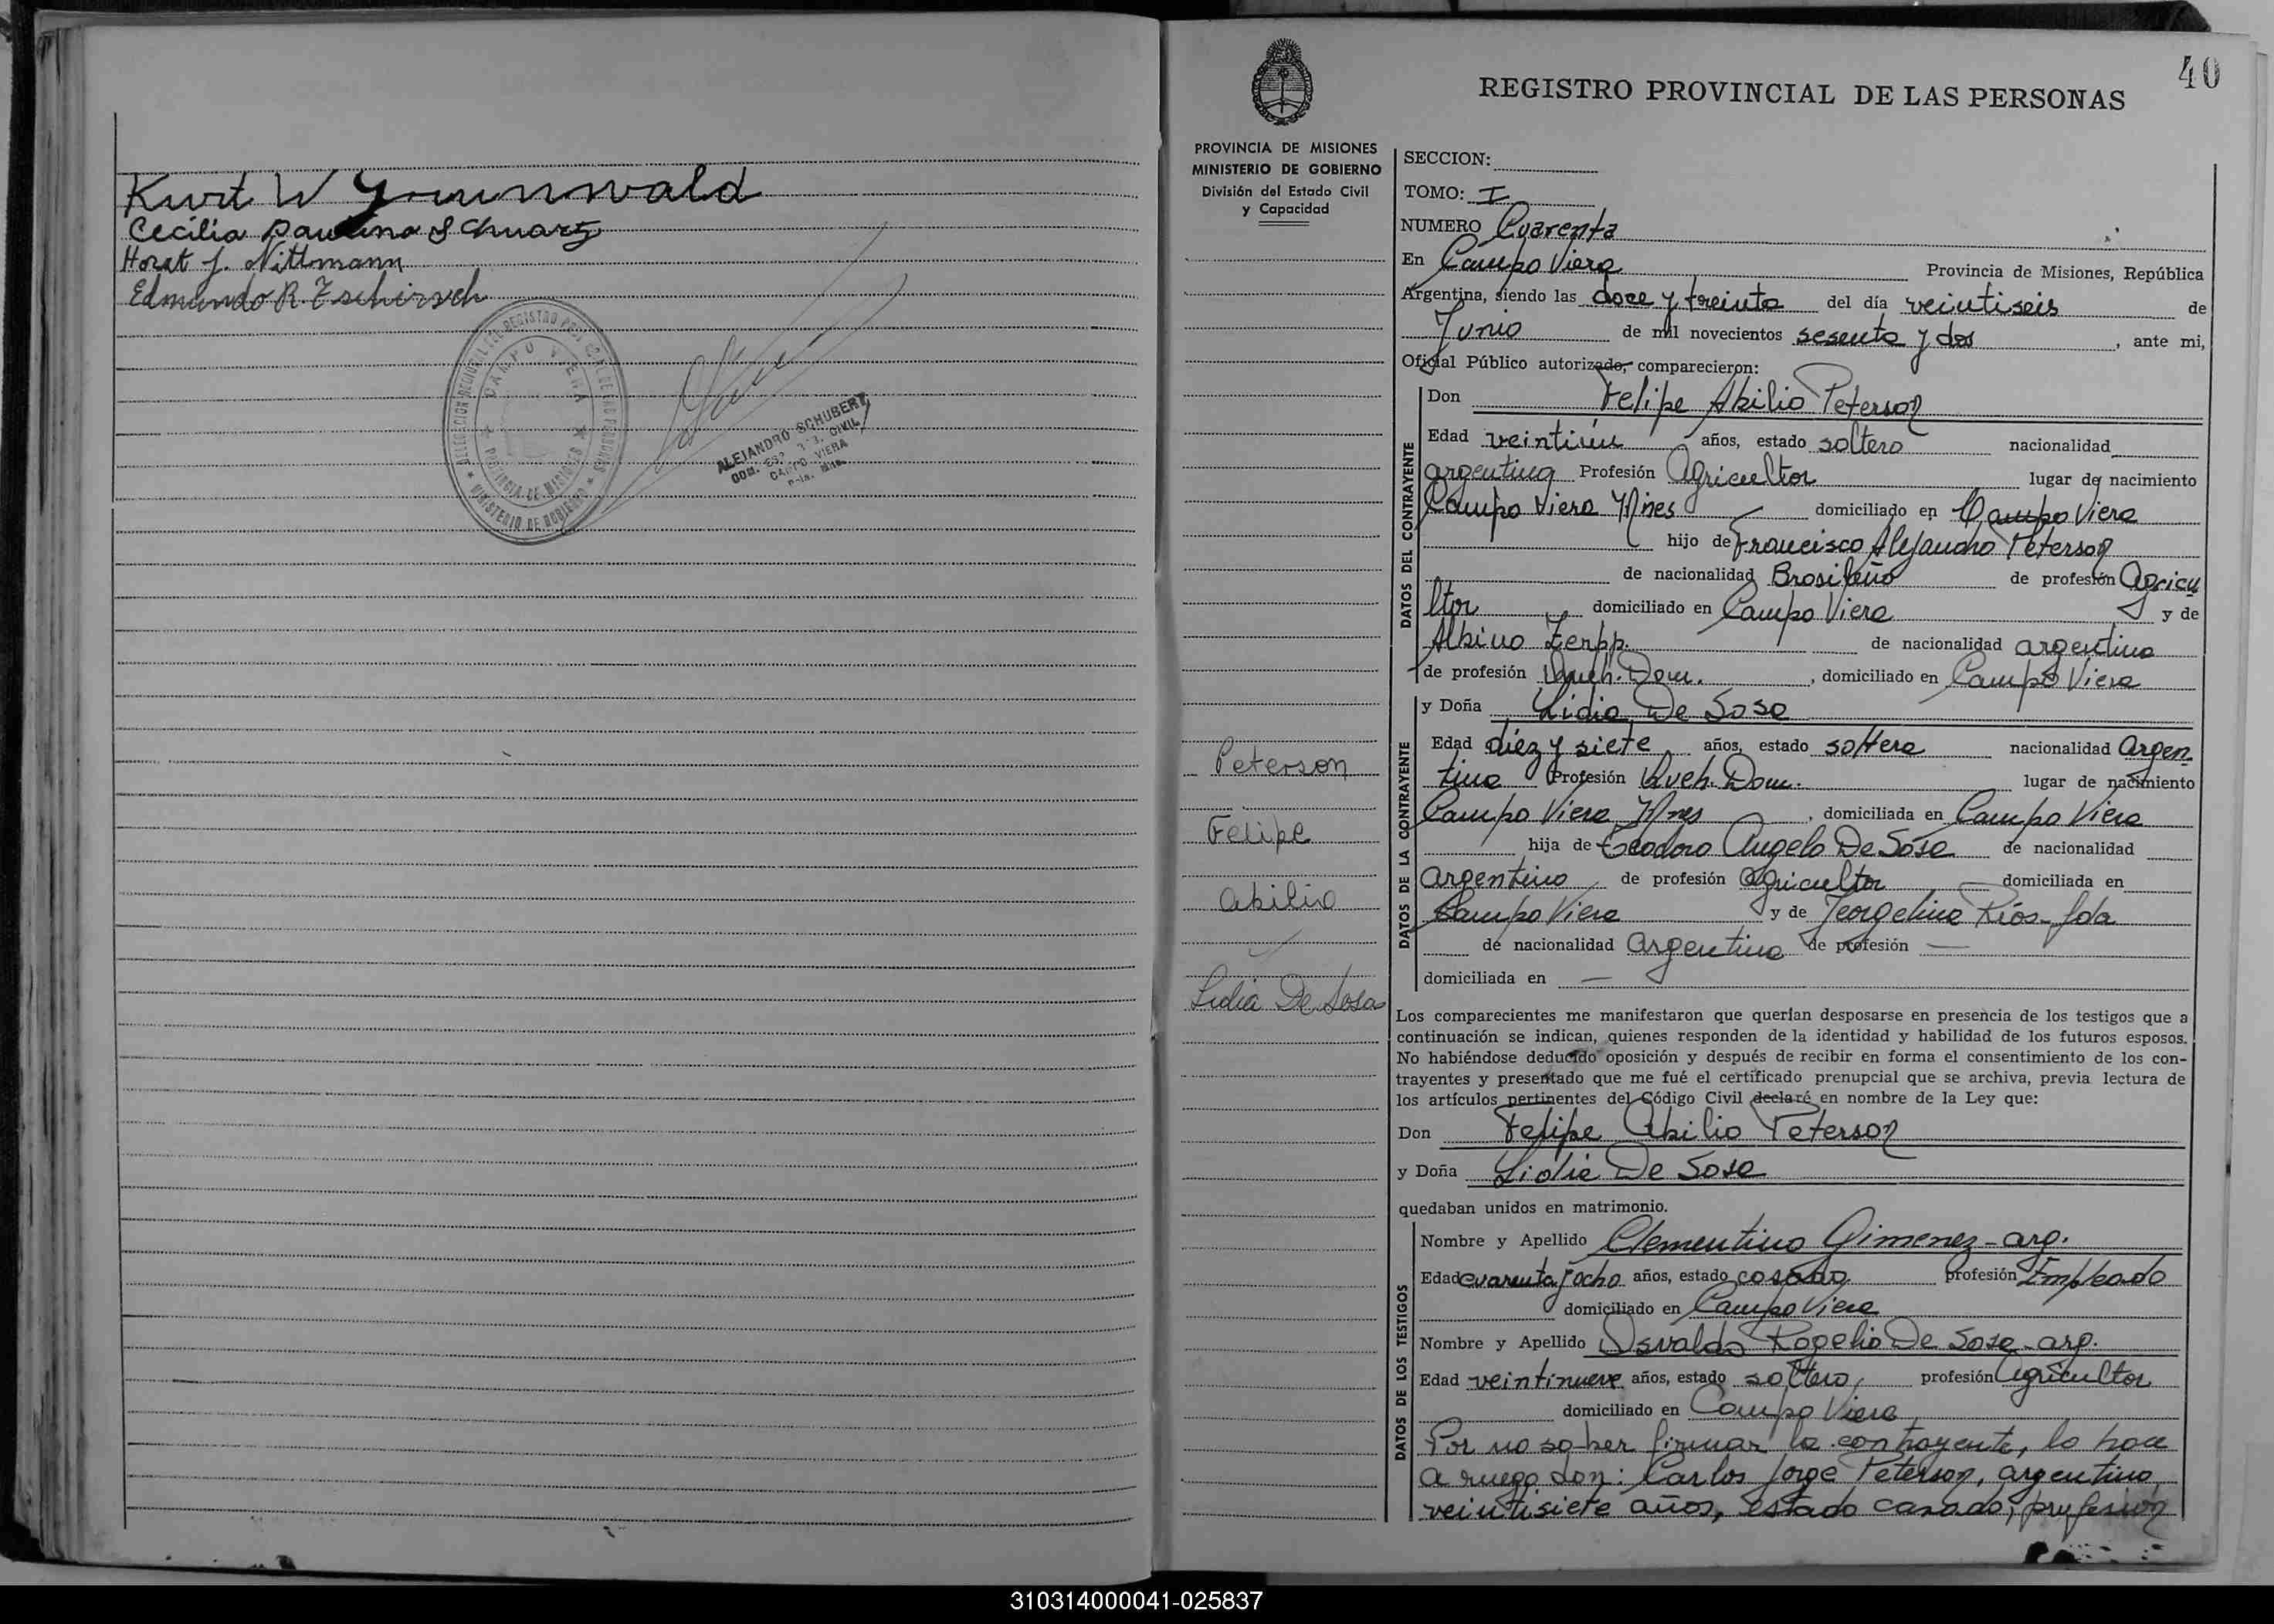 Kurt W Grunnwald
Cecilia Paulina Schuarz
Horst J. Nittmann
Edmundo R. Tschirsch
DELEGACION REGIONAL DEL REGISTRO PROVINCIAL DE LAS PERSONAS
CAMPO VIERA
PROVINCIA DE MISIONES
MINISTERIO DE GOBIERNO
ALEJANDRO SCHUBERT
CIVIL
CAMPO VIERA
Mnes.
40
REGISTRO PROVINCIAL DE LAS PERSONAS
PROVINCIA DE MISIONES
MINISTERIO DE GOBIERNO
División del Estado Civil
y Capacidad
Peterson
Felipe
Abilio
Lidia De Sosa
SECCION:
TOMO: I
NUMERO Cuarenta
En Campo Viera Provincia de Misiones, República
Argentina, siendo las doce y treinta del día veintiseis de
Junio de mil novecientos sesenta y dos, ante mi,
Oficial Público autorizado, comparecieron:
DATOS DEL CONTRAYENTE
Don Felipe Abilio Peterson
Edad veintiún años, estado soltero nacionalidad
argentina Profesión Agricultor lugar de nacimiento
Campo Viera Mnes domiciliado en Campo Viera
hijo de Francisco Alejandro Peterson
de nacionalidad Brasileño de profesión Agricu
ltor domiciliado en Campo Viera y de
Albina Zerpp. de nacionalidad argentina
de profesión Queh. Dom., domiciliado en Campo Viera
DATOS DE LA CONTRAYENTE
y Doña Lidia De Sosa
Edad diez y siete años, estado soltera nacionalidad Argen-
tina Profesión Queh. Dom. lugar de nacimiento
Campo Viera Mnes, domiciliada en Campo Viera
hija de Teodoro Angelo De Sosa de nacionalidad
Argentino de profesión Agricultor domiciliada en
Campo Viera y de Jeorgelina Ríos - fda
de nacionalidad Argentina de profesión —
domiciliada en —
Los comparecientes me manifestaron que querían desposarse en presencia de los testigos que a
continuación se indican, quienes responden de la identidad y habilidad de los futuros esposos.
No habiéndose deducido oposición y después de recibir en forma el consentimiento de los con-
trayentes y presentado que me fué el certificado prenupcial que se archiva, previa lectura de
los artículos pertinentes del Código Civil declaré en nombre de la Ley que:
Don Felipe Abilio Peterson
y Doña Lidia De Sosa
quedaban unidos en matrimonio.
DATOS DE LOS TESTIGOS
Nombre y Apellido Clementino Gimenez - arg.
Edad cuarenta y ocho años, estado casado profesión Empleado
domiciliado en Campo Viera
Nombre y Apellido Osvaldo Rogelio De Sosa - arg.
Edad veintinueve años, estado soltero, profesión Agricultor
domiciliado en Campo Viera
Por no saber firmar la contrayente, lo hace
a ruego don: Carlos Jorge Peterson, argentino
veintisiete años, estado casado, profesión
310314000041-025837